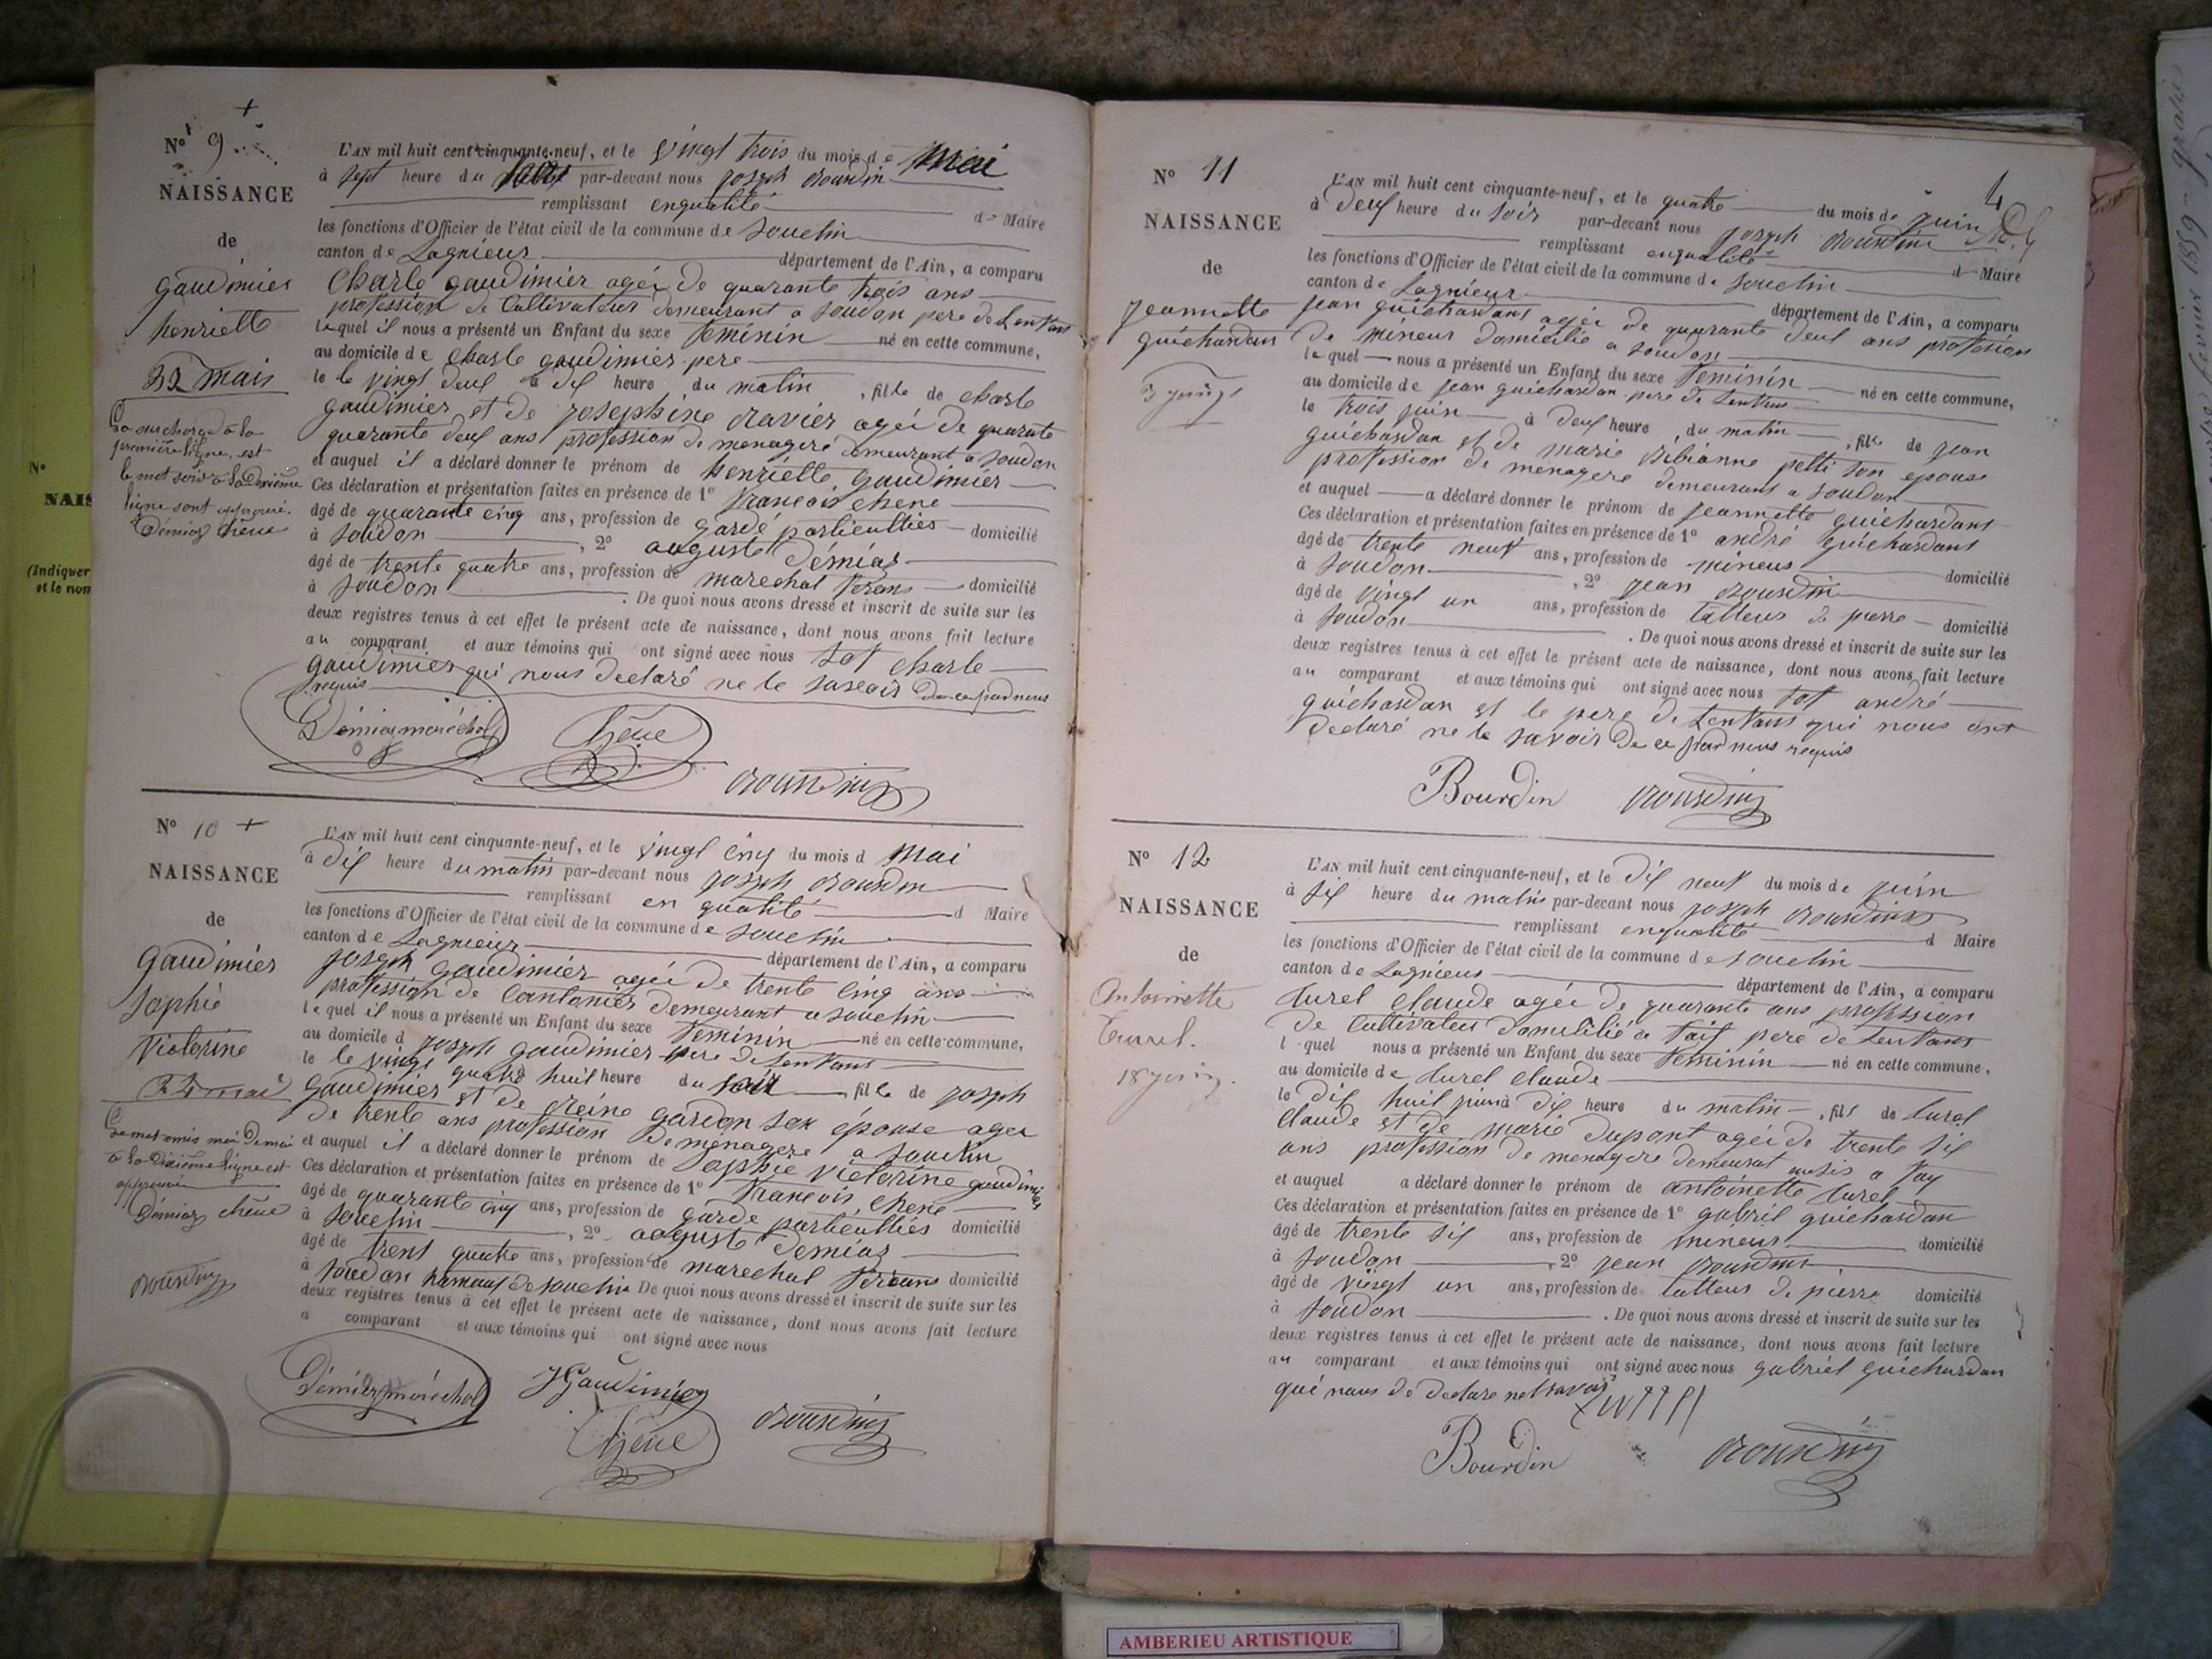 N° 9
NAISSANCE
de
gaudimier
henriette
22 mais
la surcharge à la
première ligne, est
le mot soir à la deuxième
ligne sont approuvé.
Démiaz chêne
L'AN mil huit cent cinquante-neuf, et le vingt trois du mois de mai
à sept heure du soir par-devant nous joseph Bourdin
remplissant enqualité de Maire
les fonctions d'Officier de l'état civil de la commune de Souclin
canton de Lagnieur département de l'Ain, a comparu
Charle gaudimier agée de quarante trois ans
profession de Cultivateur demeurant a Soudon pere de Lenfant
lequel il nous a présenté un Enfant du sexe feminin né en cette commune,
au domicile de charle gaudimier pere
le le vingt deux à dix heure du matin, fille de charle
gaudimier et de josephine Cravier agée de quarante
quarante deux ans profession de menagere demeurant a Soudon
et auquel il a déclaré donner le prénom de henriette gaudimier
Ces déclaration et présentation faites en présence de 1° francois chene
âgé de quarante cinq ans, profession de garde particulliés domicilié
à Soudon, 2° auguste Démiaz
âgé de trente quatre ans, profession de marechal ferans domicilié
à Soudon. De quoi nous avons dressé et inscrit de suite sur les
deux registres tenus à cet effet le présent acte de naissance, dont nous avons fait lecture
au comparant et aux témoins qui ont signé avec nous sof charle
gaudimier qui nous declaré ne le savoir de ce par nous
requis
Démiaz maréchal
Chêne
Bourdin
N° 10
NAISSANCE
de
gaudimier
Sophie
Victorine
24 mai
Le mot omis moi de mai
a la dixieme ligne est
approuvé
Démiaz chêne
Bourdin
L'AN mil huit cent cinquante-neuf, et le vingt cinq du mois d mai
à dix heure du matin par-devant nous joseph Bourdin
remplissant en qualité d Maire
les fonctions d'Officier de l'état civil de la commune de Souclin
canton de Lagnieur département de l'Ain, a comparu
joseph gaudimier agée de trente cinq ans
profession de Cantonier demeurant a Souclin
lequel il nous a présenté un Enfant du sexe feminin né en cette commune,
au domicile d joseph gaudimier pere de Lenfans
le le vingt quatre huit heure du soir fille de joseph
gaudimier et de Reine gardon son épouse agee
de trente ans profession de menagere a Souclin
et auquel il a déclaré donner le prénom de Sophie Victorine gaudimier
Ces déclaration et présentation faites en présence de 1° francois chene
âgé de quarante cinq ans, profession de garde particulliés domicilié
à Souclin, 2° auguste Demiaz
âgé de trent quatre ans, profession de marechal ferans domicilié
à Soudon hamaux de Souclin De quoi nous avons dressé et inscrit de suite sur les
deux registres tenus à cet effet le présent acte de naissance, dont nous avons fait lecture
a comparant et aux témoins qui ont signé avec nous
Démiaz maréchal
J Gaudimier
Chêne
Bourdin
4
N° 11
NAISSANCE
de
Jeannette
guichardant
3 juin
L'AN mil huit cent cinquante-neuf, et le quatre du mois de juin
à deux heure du soir par-devant nous joseph Bourdin
remplissant enqualité d Maire
les fonctions d'Officier de l'état civil de la commune de Souclin
canton de Lagnieur département de l'Ain, a comparu
jean guichardant agée de quarante deux ans profession
de mineur domicilié a Soudon
lequel nous a présenté un Enfant du sexe feminin né en cette commune,
au domicile de jean guichardan pere de Lenfans
le trois juin à deux heure du matin, fille de jean
guichardan et de marie Bibianne petti son epouse
profession de menagere demeurant a Soudon
et auquel a déclaré donner le prénom de jeannette guichardant
Ces déclaration et présentation faites en présence de 1° andré guichardant
âgé de trente neuf ans, profession de mineur domicilié
à Soudon, 2° jean Bourdin
âgé de vingt un ans, profession de talleur de pierre domicilié
à Soudon. De quoi nous avons dressé et inscrit de suite sur les
deux registres tenus à cet effet le présent acte de naissance, dont nous avons fait lecture
au comparant et aux témoins qui ont signé avec nous sof andré
guichardan et le pere de Lenfans qui nous ont
declaré ne le savoir de ce par nous requis
Bourdin
Bourdin
N° 12
NAISSANCE
de
Antoinette
Turel.
18 juin.
L'AN mil huit cent cinquante-neuf, et le dix neuf du mois de juin
à six heure du matin par-devant nous joseph Bourdin
remplissant enqualité d Maire
les fonctions d'Officier de l'état civil de la commune de Souclin
canton de Lagnieur département de l'Ain, a comparu
turel claude agée de quarante ans profession
de Cultivateur domicilié a fay pere de Lenfans
lquel nous a présenté un Enfant du sexe feminin né en cette commune,
au domicile de turel claude
le dix huit juin à dix heure du matin, fils de turel
claude et de marie dupont agée de trente six
ans profession de menagere demeurat ausis a fay
et auquel a déclaré donner le prénom de antoinette turel
Ces déclaration et présentation faites en présence de 1° gabriel guichardan
âgé de trente six ans, profession de mineur domicilié
à Soudon, 2° jean Bourdin
âgé de vingt un ans, profession de talleur de pierre domicilié
à Soudon. De quoi nous avons dressé et inscrit de suite sur les
deux registres tenus à cet effet le présent acte de naissance, dont nous avons fait lecture
au comparant et aux témoins qui ont signé avec nous gabriel guichardan
qui nous de declare ne savoir
Bourdin
Bourdin
N°
NAIS
(Indiquer
et le nom
AMBERIEU ARTISTIQUE